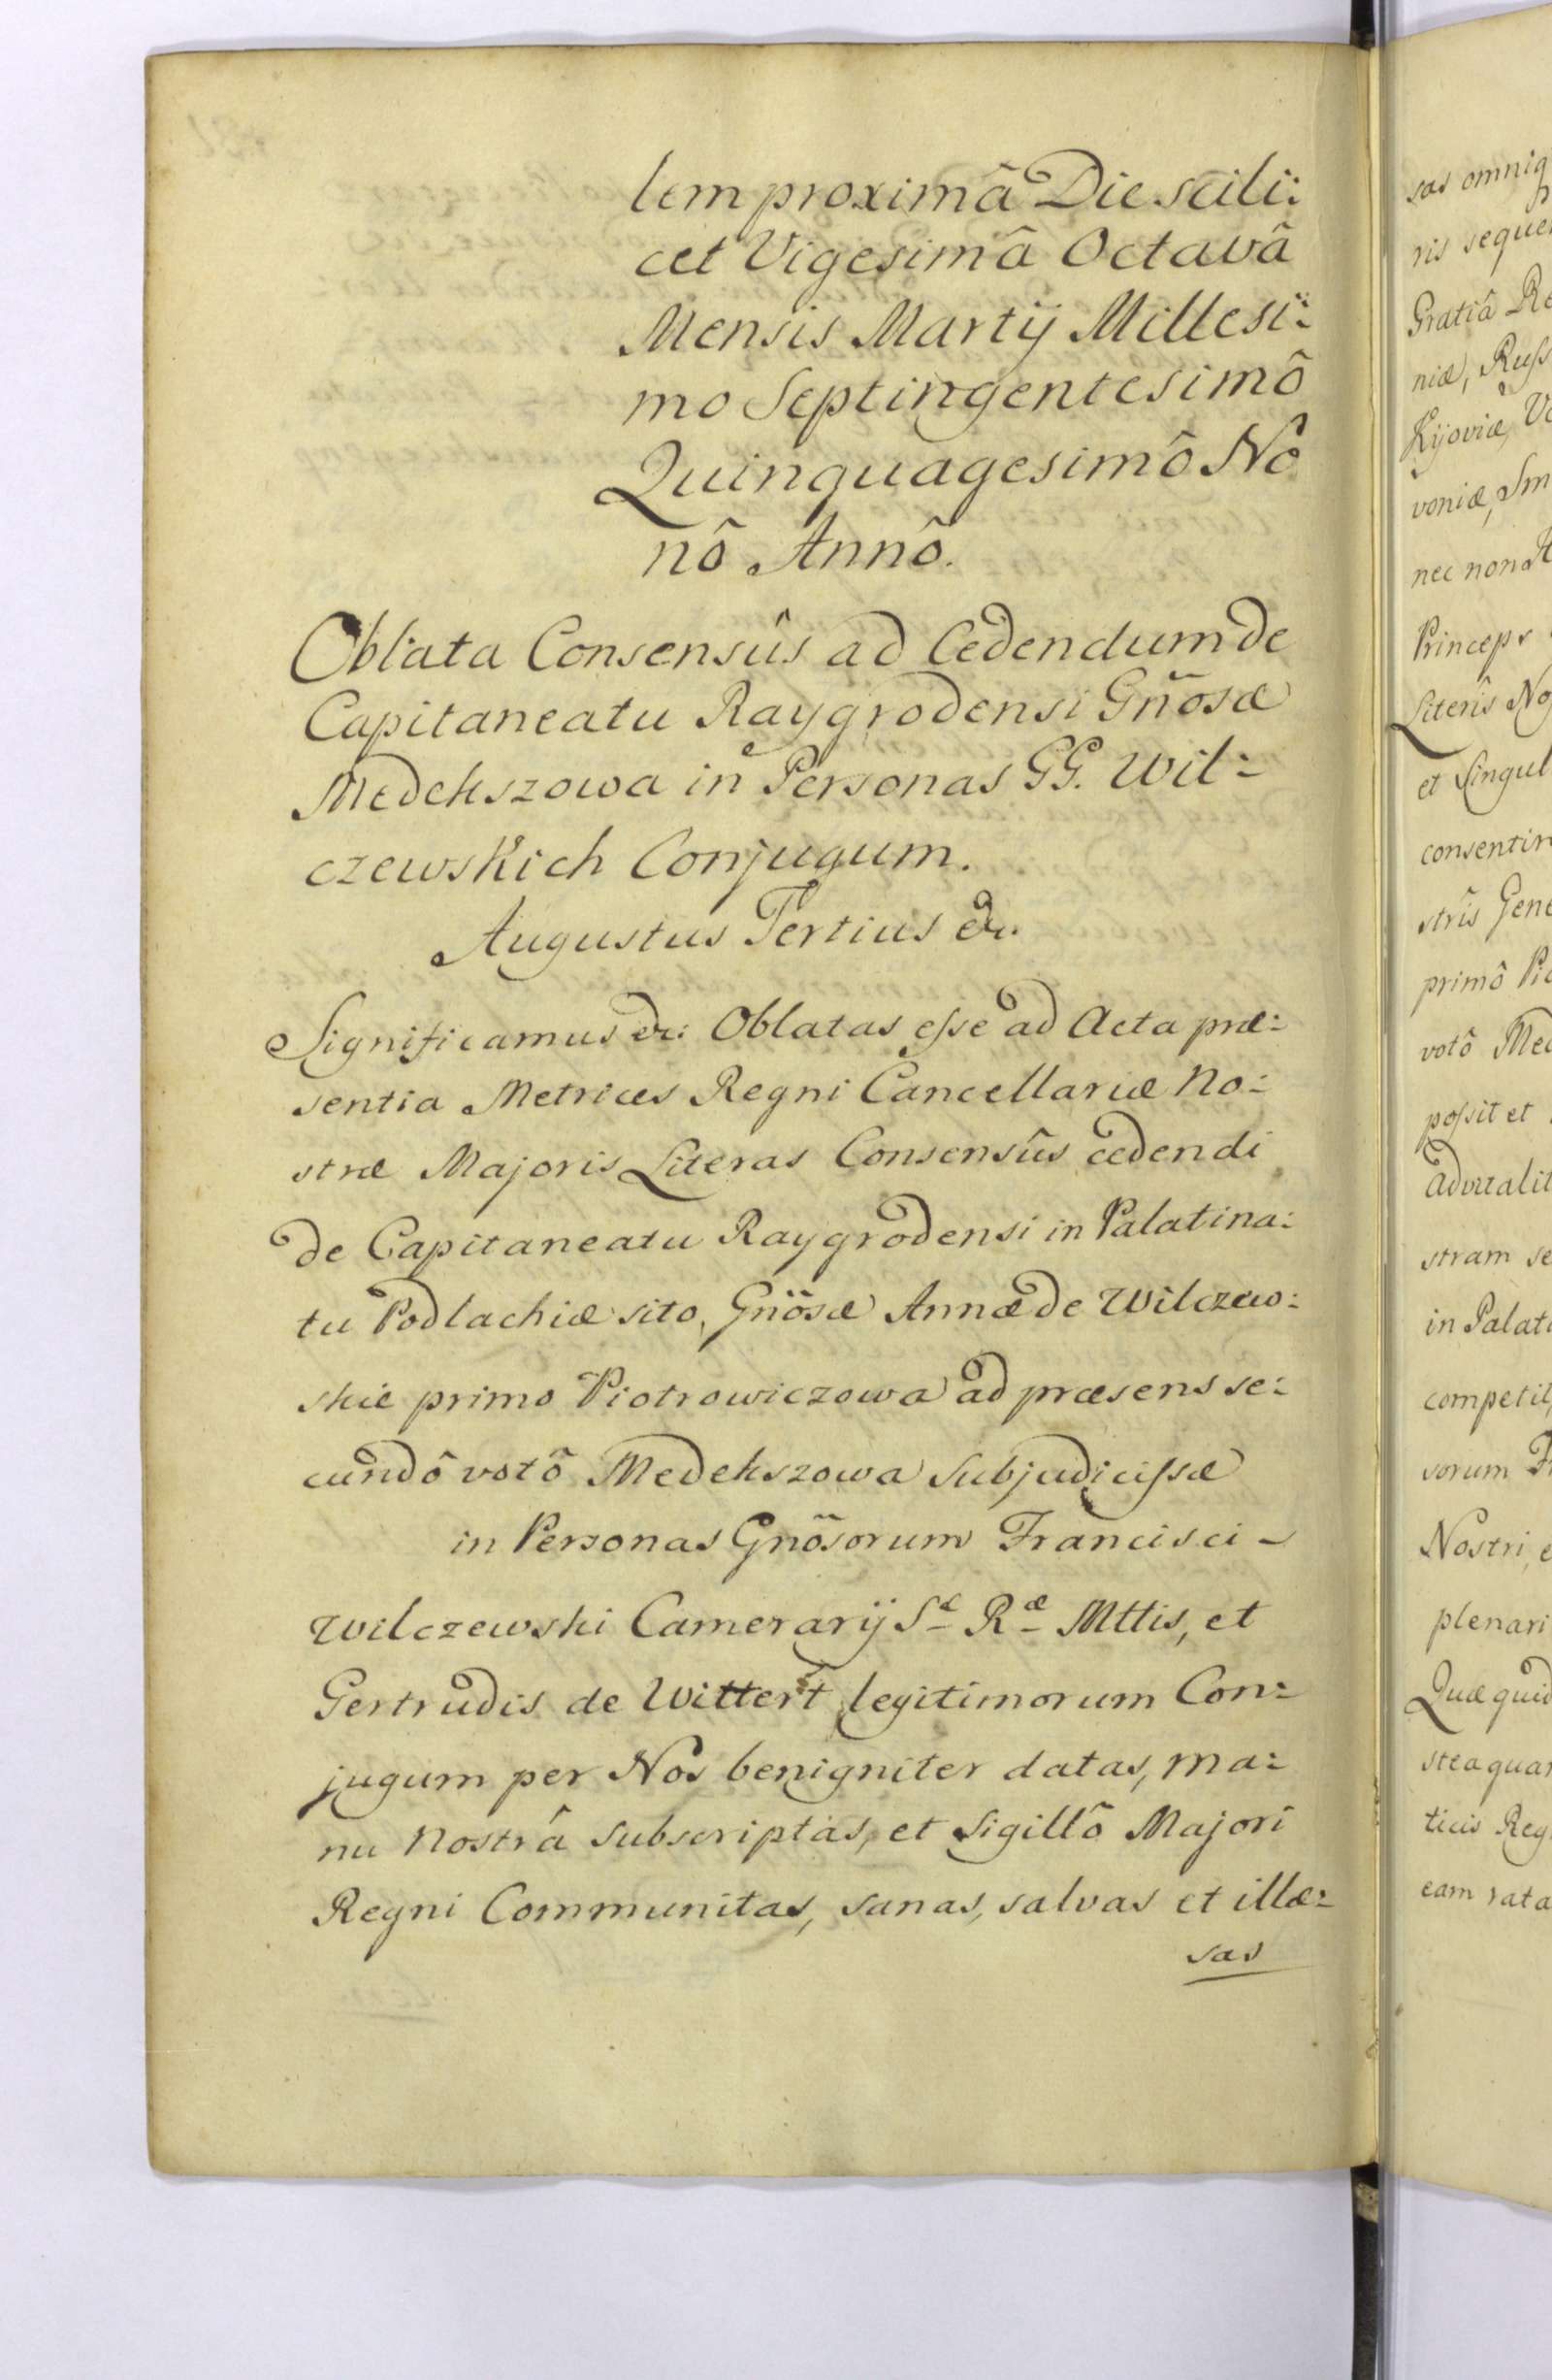 lem proximâ Die scili:
cet Vigesimâ Octavâ
Mensis Martij Millesi:
mo Septingentesimô
Quinquagesimô No
nô Annô.
Oblata Consensûs ad Cedendum de
Capitaneatu Raygrodensi Gñosæ
Medekszowa in Personas GG. Wil:
czewskich Conjugum.
Augustus Tertius &c.
Significamus &c: Oblatas eſse ad Acta præ:
sentia Metrices Regni Cancellariæ No:
stræ Majoris Literas Consensûs cedendi
de Capitaneatu Raygrodensi in Palatina:
tu Podlachiæ sito, Gñosæ Annæ de Wilczew:
skie primo Piotrowiczowa ad præsens se:
cundô votô Medekszowa Subjudiciſsæ
in Personas Gñosorum Francisci -
Wilczewski Camerarij Sæ Ræ Mttis, et
Gertrudis de Wittert legitimorum Con:
jugum per Nos benigniter datas, ma:
nu Nostrâ subscriptas, et Sigillô Majori
Regni Communitas, sanas, salvas et illæ:
sas
sas omniq
ris seque
Gratiâ Re
niæ, Ruſs
Kijoviæ, Vo
voniæ, Sm
nec non
Princeps
Literis No
et Singul
consentin
stris Gene
primô Pio
votô Med
poſsit et
advitalit
stram se
in Palati
competit,
sorum Fr
Nostri, e
plenari
Quæ quid
stea quam
ticis Reg
eam rata